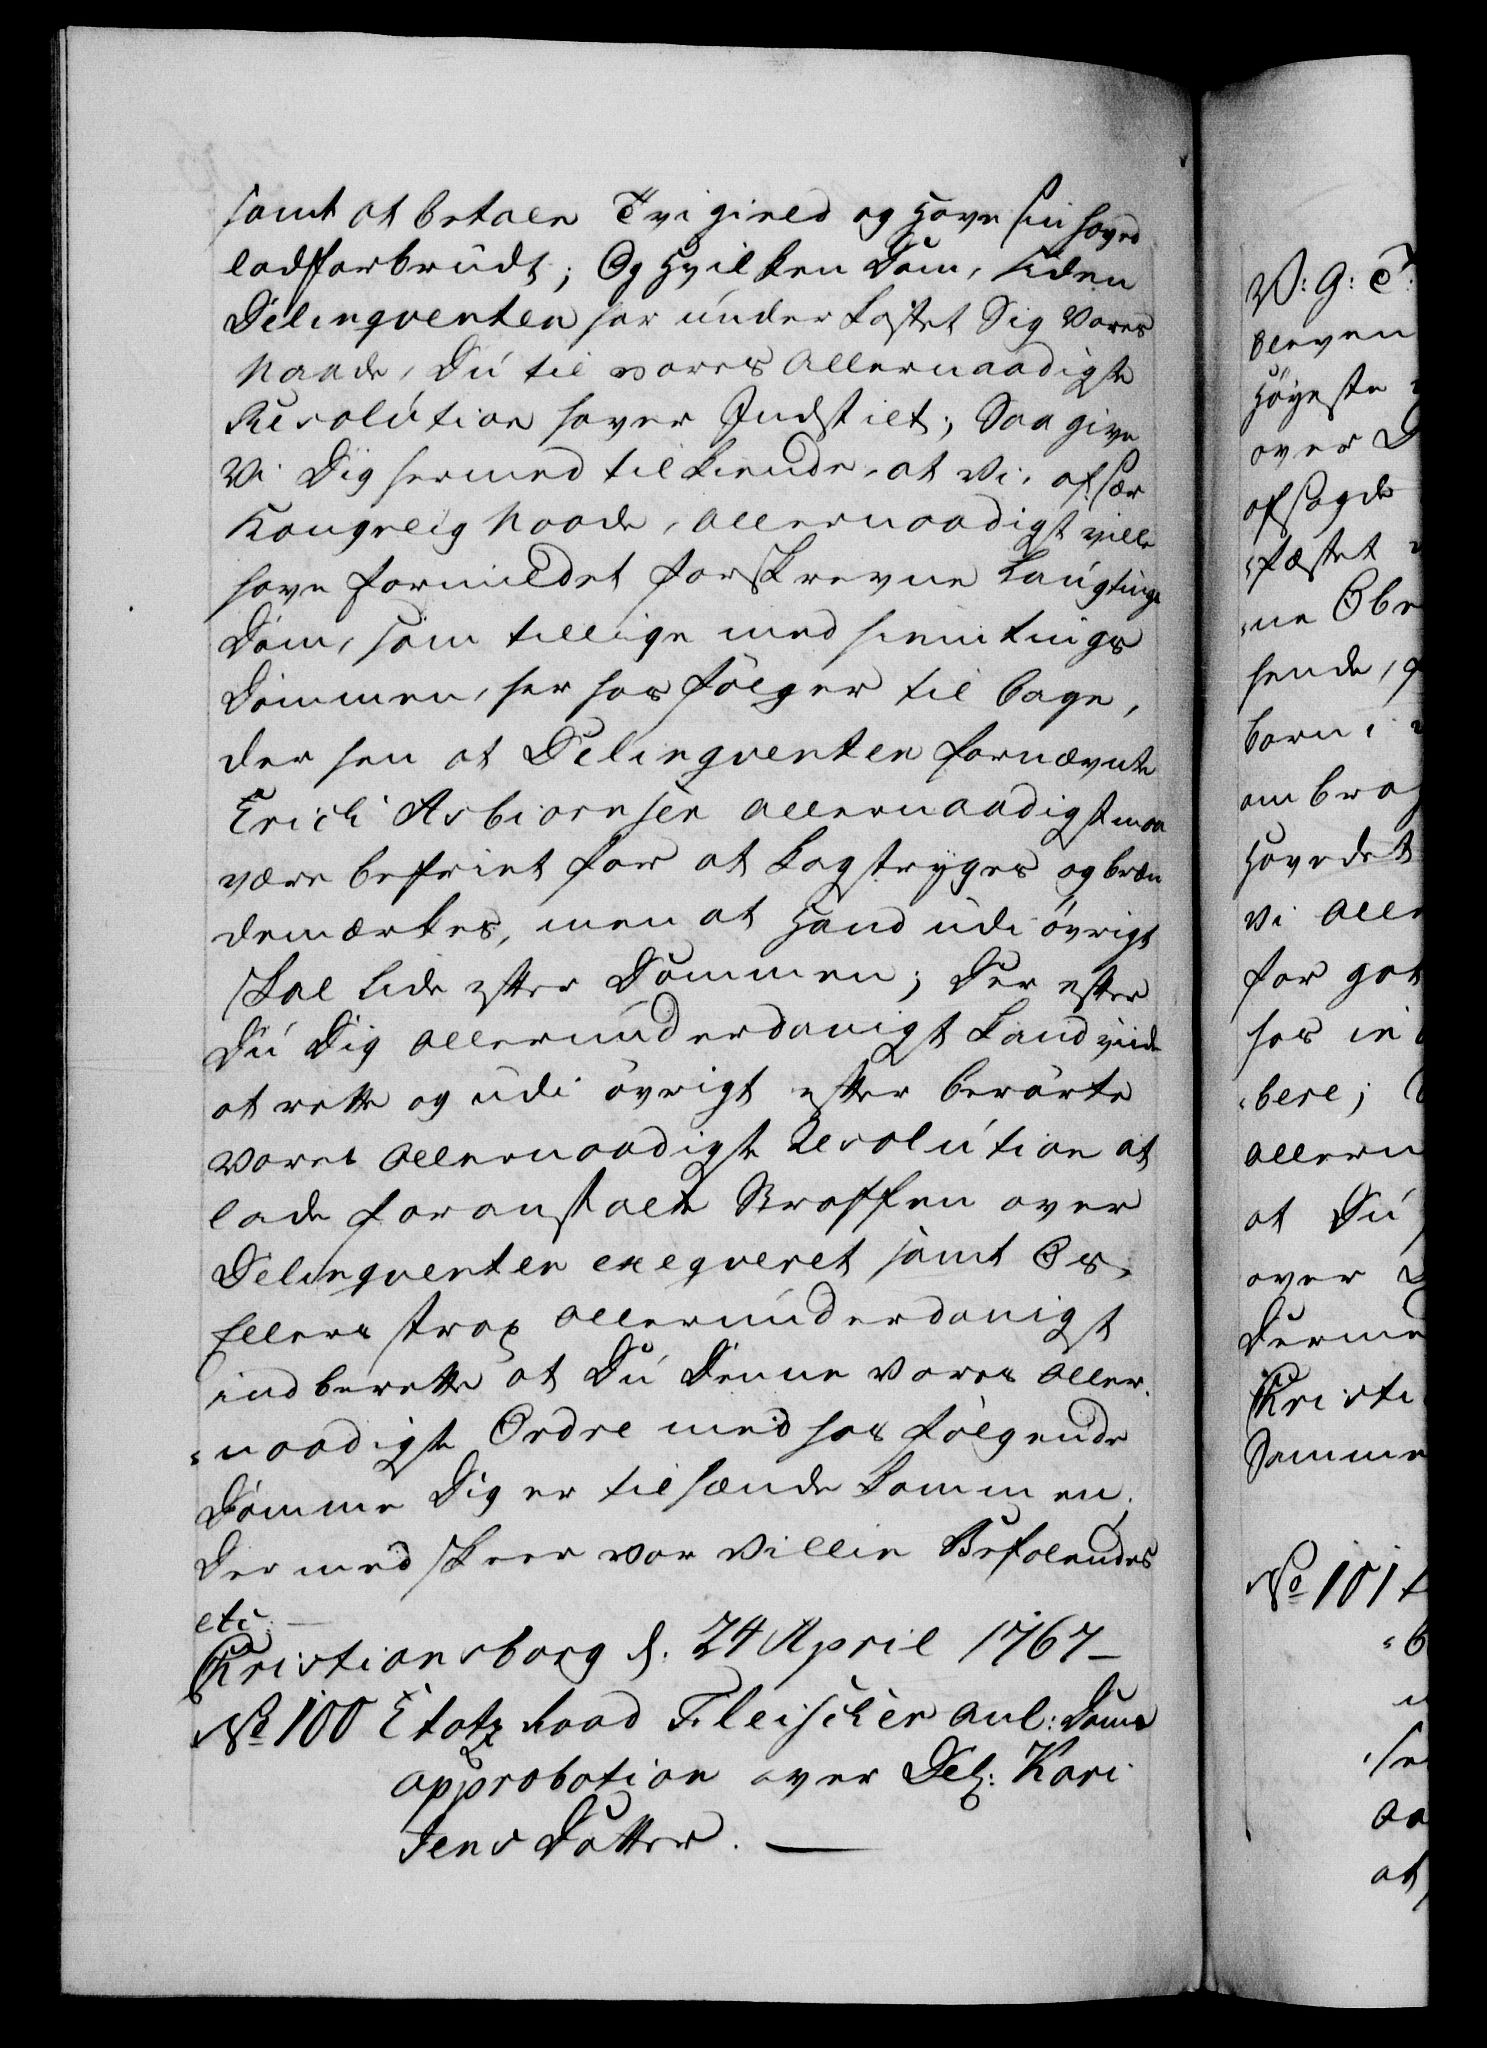 samt at betale Tvigield og have sin hoved
lod forbrudt; Og hvilken Dom, siden
Delinqventen har underkastet Sig Vores
Naade, Du til vores Allernaadigste
Resolution haver Indstilt; Saa give
Vi Dig hermed tilkiende, at Vi, af sær
Kongelig Naade, allernaadigst ville
have formildet forskrevne Laugtings
Dom, som tillige med hiemtings
Dommen, her hos følger til bage,
der hen at Delinqventen fornævnte
Erich Asbiørnsen allernaadigst maa
være befriet for at kagstryges og bræn
demærkes, men at Hand udi øvrigt
skal lide efter Dommen; Der efter
Du Dig allerunderdanigst kand viide
at rette og udi øvrigt efter berørte
Vores Allernaadigste Resolution at
lade foranstalte Straffen over
Delinqventen exeqveret samt Os,
Ellers strax allerunderdanigst
indberette at Du Denne Vores Aller-
naadigste Ordre med hos følgende
Domme Dig er tilhænde kommen;
Dermed skeer vor Villie Befalendes
etc:
Christiansborg d. 24 April 1767
No 100 Etatz Raad Fleischer anl: Doms
approbation over Del: Kari
Jens Datter.
V: G: T:
Høyeste
over D
afsagde
fæstet
ne Obe
hende,
barn i
om bra
Hovedet
Vi Alle
for got
hos in
bere;
allern
at Du
over
Derme
Christi
Samme
No 101
at